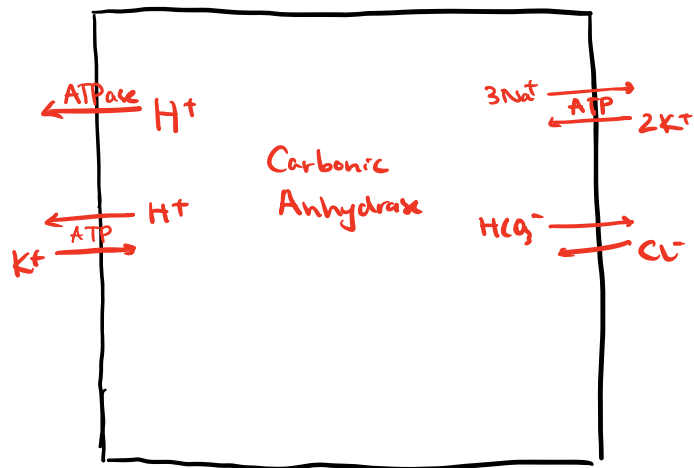 ATPase
H⁺
H⁺
ATP
K⁺
Carbonic
Anhydrase
3Na⁺
ATP
2K⁺
HCO₃⁻
Cl⁻